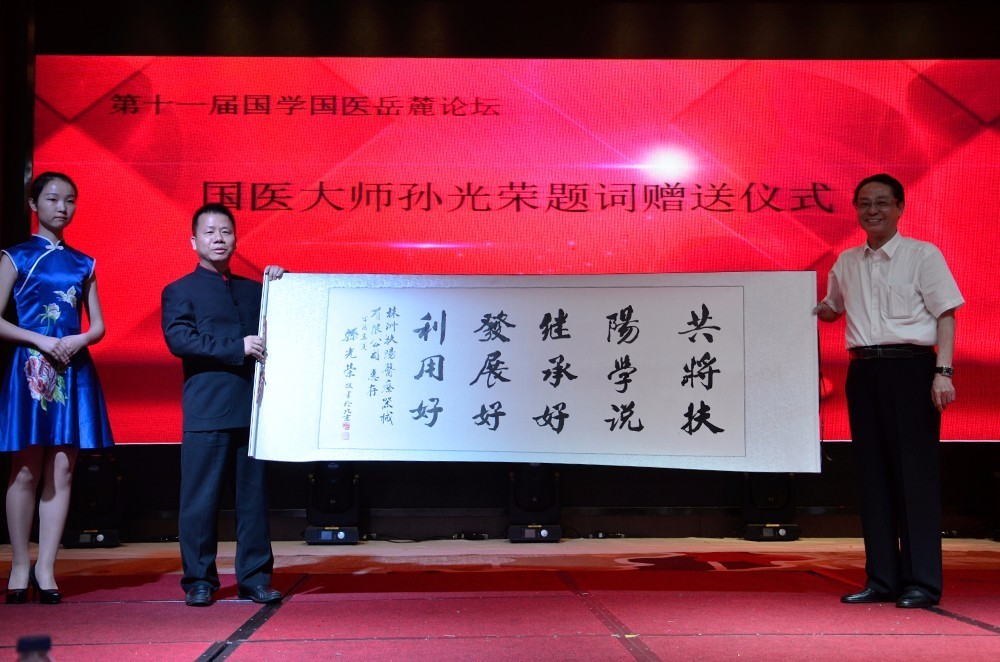 第十一届国学国医岳麓论坛
国医大师孙光荣题词赠送仪式
共將扶
陽学说
继承好
發展好
利用好
株洲扶陽醫療器械
有限公司惠存
孫光荣